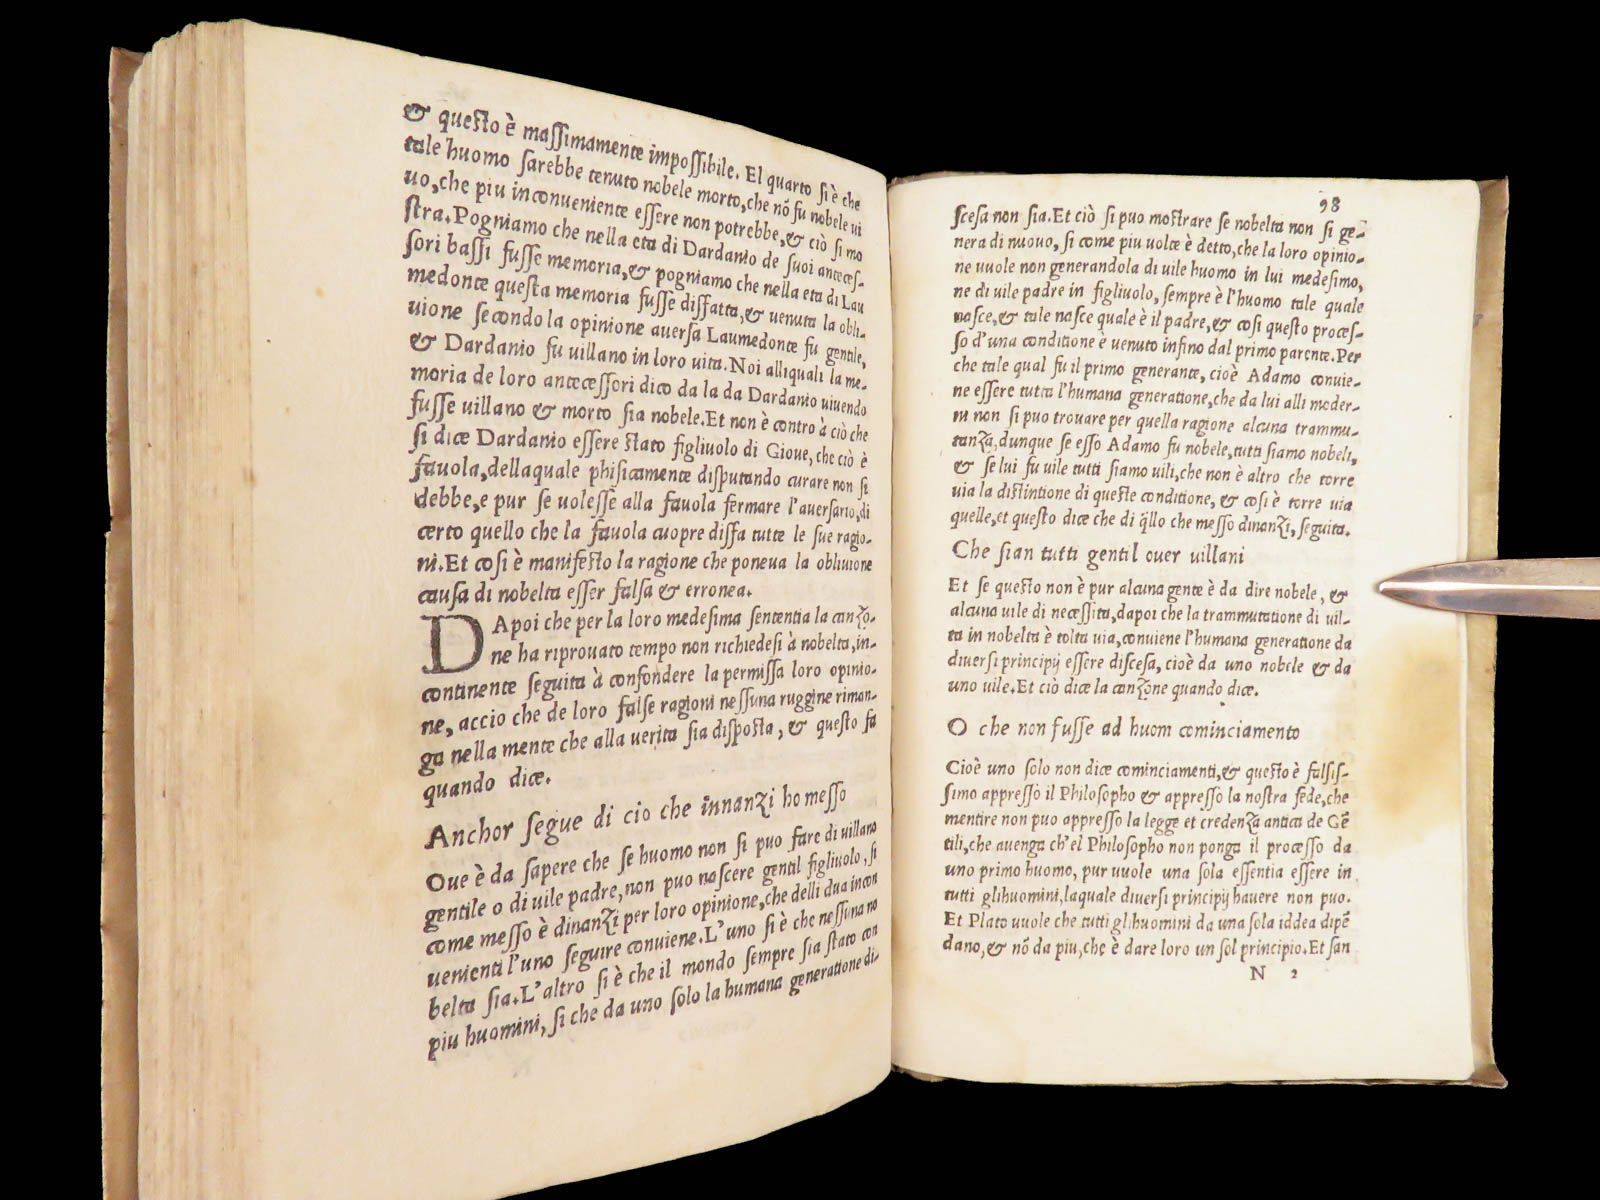 & questo è massimamente impossibile. El quarto si è che
tale huomo sarebbe tenuto nobele morto, che nō fu nobele ui
uo, che piu inconueniente essere non potrebbe, & ciò si mo
stra. Pogniamo che nella eta di Dardanio de suoi anteces-
sori bassi fusse memoria, & pogniamo che nella eta di Lau
medonte questa memoria fusse disfatta, & uenuta la obli-
uione secondo la opinione auersa Laumedonte fu gentile,
& Dardanio fu uillano in loro uita. Noi alliquali la me-
moria de loro antecessori dico da la da Dardanio uiuendo
fusse uillano & morto sia nobele. Et non è contro à ciò che
si dice Dardanio essere stato figliuolo di Gioue, che ciò è
fauola, dellaquale phisicamente disputando curare non si
debbe, e pur se uolesse alla fauola fermare l'auersario, di
certo quello che la fauola cuopre disfa tutte le sue ragio-
ni. Et cosi è manifesto la ragione che poneua la obliuione
causa di nobelta esser falsa & erronea.
DApoi che per la loro medesima sententia la canzo-
ne ha riprouato tempo non richiedesi à nobelta, in-
continente seguita à confondere la permissa loro opinio-
ne, accio che de loro false ragioni nessuna ruggine riman-
ga nella mente che alla uerita sia disposta, & questo fa
quando dice.
Anchor segue di cio che innanzi ho messo
Oue è da sapere che se huomo non si puo fare di uillano
gentile o di uile padre, non puo nascere gentil figliuolo, si
come messo è dinanzi per loro opinione, che delli dua incon
uenienti l'uno seguire conuiene. L'uno si è che nessuna no
belta sia. L'altro si è che il mondo sempre sia stato con
piu huomini, si che da uno solo la humana generatione di-
98
scesa non sia. Et ciò si puo mostrare se nobelta non si ge-
nera di nuouo, si come piu uolte è detto, che la loro opinio-
ne uuole non generandola di uile huomo in lui medesimo,
ne di uile padre in figliuolo, sempre è l'huomo tale quale
nasce, & tale nasce quale è il padre, & cosi questo proces-
so d'una conditione è uenuto infino dal primo parente. Per
che tale qual fu il primo generante, cioè Adamo conuie-
ne essere tutta l'humana generatione, che da lui alli moder-
ni non si puo trouare per quella ragione alcuna trammu-
tanza, dunque se esso Adamo fu nobele, tutti siamo nobeli,
& se lui fu uile tutti siamo uili, che non è altro che torre
uia la distintione di queste conditione, & cosi è torre uia
quelle, et questo dice che di q̃llo che messo dinanzi, seguita.
Che sian tutti gentil ouer uillani
Et se questo non è pur alcuna gente è da dire nobele, &
alcuna uile di necessita, dapoi che la trammutatione di uil-
ta in nobelta è tolta uia, conuiene l'humana generatione da
diuersi principij essere discesa, cioè da uno nobele & da
uno uile. Et ciò dice la canzone quando dice.
O che non fusse ad huom cominciamento
Cioè uno solo non dice cominciamenti, & questo è falsis-
simo appresso il Philosopho & appresso la nostra fede, che
mentire non puo appresso la legge et credenza antica de Gē
tili, che auenga ch'el Philosopho non ponga il processo da
uno primo huomo, pur uuole una sola essentia essere in
tutti glihuomini, laquale diuersi principij hauere non puo.
Et Plato uuole che tutti glihuomini da una sola iddea dipē
dano, & nō da piu, che è dare loro un sol principio. Et san
N 2